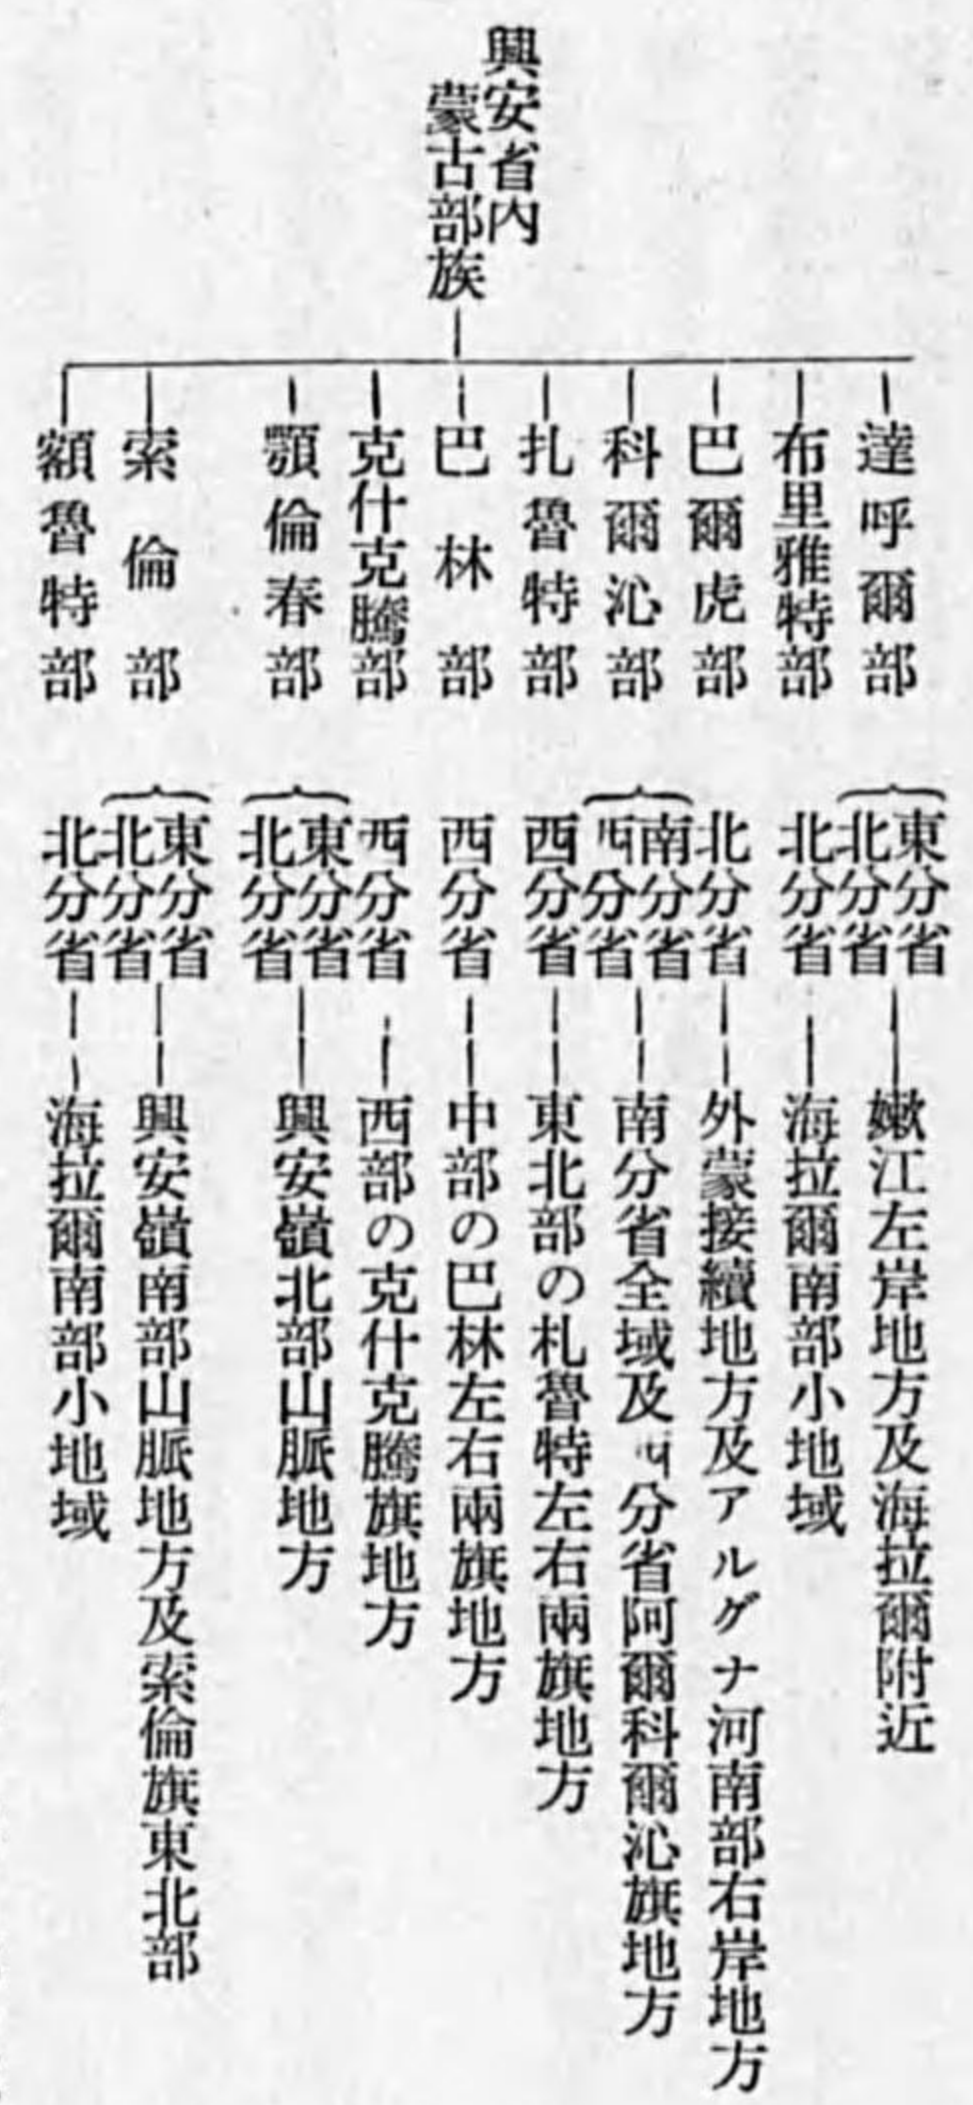 興安省內
蒙古部族
達呼爾部
東分省
北分省
嫩江左岸地方及海拉爾附近
布里雅特部
北分省
海拉爾南部小地域
巴爾虎部
北分省
外蒙接續地方及アルグナ河南部右岸地方
科爾沁部
南分省
西分省
南分省全域及西分省阿爾科爾沁旗地方
扎魯特部
西分省
東北部の札魯特左右兩旗地方
巴林部
西分省
中部の巴林左右兩旗地方
克什克騰部
西分省
西部の克什克騰旗地方
顎倫春部
東分省
北分省
興安嶺北部山脈地方
索倫部
東分省
北分省
興安嶺南部山脈地方及索倫旗東北部
額魯特部
北分省
海拉爾南部小地域